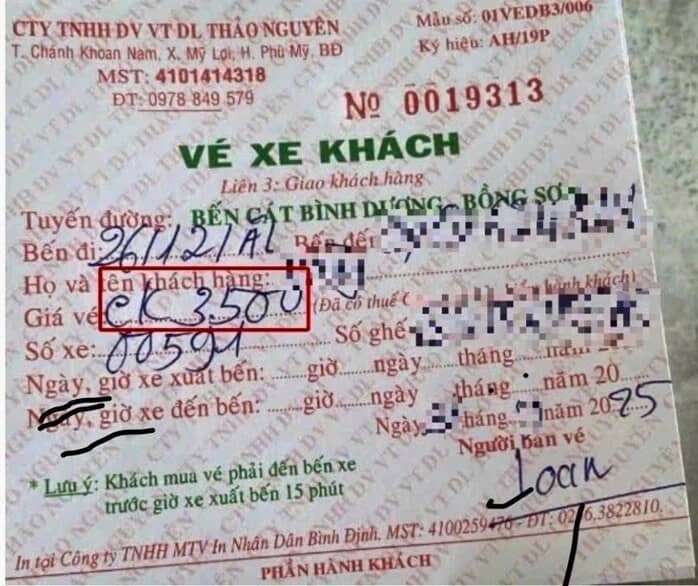 CTY TNHH DV VT DL THẢO NGUYÊN
Mẫu số: 01VEDB3/006
T. Chánh Khoan Nam, X. Mỹ Lợi, H. Phù Mỹ, BĐ
Ký hiệu: AH/19P
MST: 4101414318
ĐT: 0978 849 579
Nº 0019313
VÉ XE KHÁCH
Liên 3: Giao khách hàng
Tuyến đường: BẾN CÁT BÌNH DƯƠNG - BỒNG SƠN
Bến đi: 26/12/AL Bến đến
Họ và tên khách hàng:
Giá vé CK 3.500 (Đã có thuế hành khách)
Số xe: 00591 Số ghế
Ngày, giờ xe xuất bến: giờ ngày tháng năm 20
Ngày, giờ xe đến bến: giờ ngày tháng năm 20
Ngày tháng năm 2025
Người bán vé
* Lưu ý: Khách mua vé phải đến bến xe
trước giờ xe xuất bến 15 phút
Loan
In tại Công ty TNHH MTV In Nhân Dân Bình Định. MST: 4100259476 - ĐT: 0256.3822810.
PHẦN HÀNH KHÁCH